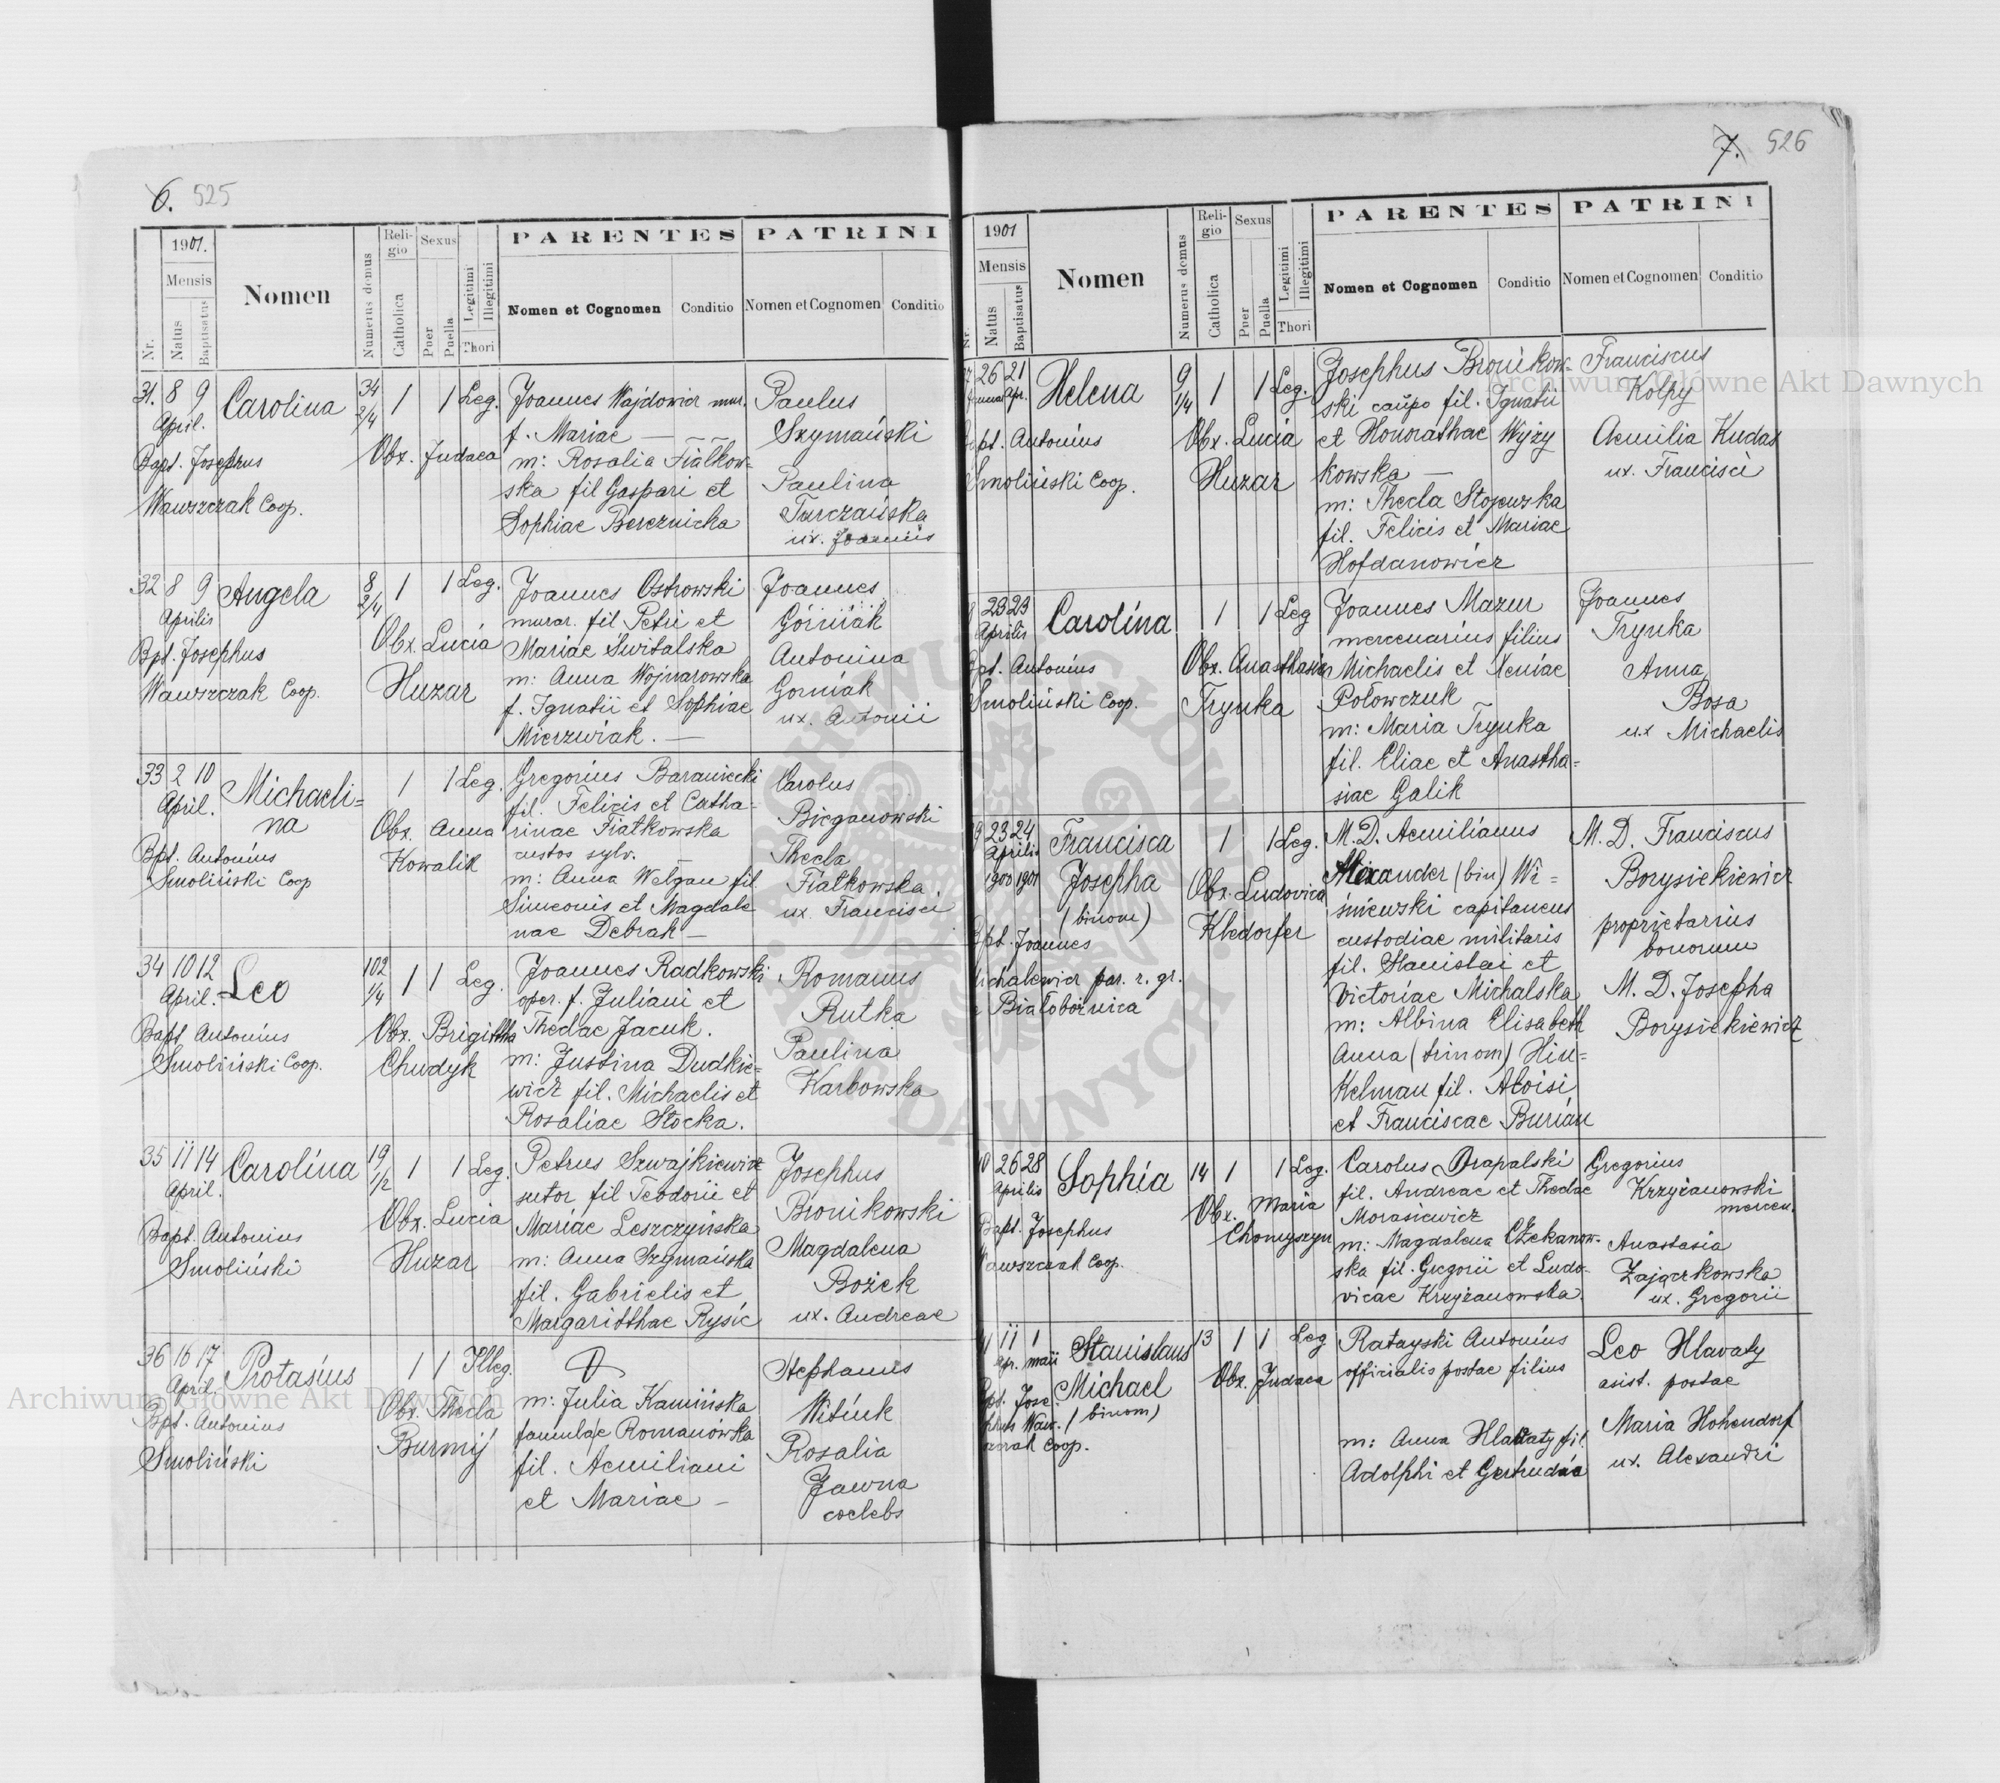 6. 525
1901.
Mensis
Nr.
Natus
Baptisatus
Nomen
Numerus domus
Reli-
gio
Catholica
Sexus
Puer
Puella
Legitimi
Illegitimi
Thori
PARENTES
Nomen et Cognomen
Conditio
PATRINI
Nomen et Cognomen
Conditio
31. 8 9 Carolina 34 2/4 1 1 Leg.
April.
Bapt. Josephus
Wawszczak Coop.
Obx. Judaea
Joannes Wajdowicz mur.
f. Mariae —
m: Rosalia Fiałkow-
ska fil Gaspari et
Sophiae Bereznicka
Paulus
Szymański
Paulina
Turczańska
ux. Joannis
32 8 9 Angela 8 2/4 1 1 Leg.
Aprilis
Bpt. Josephus
Wawszczak Coop.
Obx. Lucia
Huzar
Joannes Ostrowski
murar. fil Petri et
Mariae Świtalska
m: Anna Wojnarowska
f. Ignatii et Sophiae
Mierzwiak. —
Joannes
Górniak
Antonina
Gorniak
ux. Antonii
33 2 10 Michaeli=
na
April.
1 1 Leg.
Bpt. Antonius
Smoliński Coop
Obx. Anna
Kowalik
Gregorius Baraniecki
fil. Felicis et Catha-
rinae Fiatkowska
custos sylv. —
m: Anna Welgan fil.
Simeonis et Magdale
nae Debrak —
Carolus
Bieganowski
Thecla
Fiatkowska
ux. Francisci
34 10 12 Leo 102 1/4 1 1 Leg.
April.
Bapt Antonius
Smoliński Coop.
Obx. Brigittha
Chudyk
Joannes Radkowski
oper. f. Juliani et
Theclae Jacuk.
m: Justina Dudkie=
wicz fil. Michaelis et
Rosaliae Stocka.
Romanus
Rutka
Paulina
Karbowska
35 11 14 Carolina 19 1/2 1 1 Leg.
April.
Bapt. Antonius
Smoliński
Obx. Lucia
Huzar
Petrus Szwajkiewicz
sutor fil Teodorii et
Mariae Leszczyńska
m: Anna Szymańska
fil. Gabrielis et
Margaritthae Rysic
Josephus
Bronikowski
Magdalena
Bożek
ux. Andreae
36 16 17 Protasius 1 1 Illeg.
April.
Bpt. Antonius
Smoliński
Obx. Thecla
Burmij
m: Julia Kamińska
famulae Romanowska
fil. Aemiliani
et Mariae —
Stephanus
Witiuk
Rosalia
Jawna
coelebs
7. 526
1901
Mensis
Nr.
Natus
Baptisatus
Nomen
Numerus domus
Reli-
gio
Catholica
Sexus
Puer
Puella
Legitimi
Illegitimi
Thori
PARENTES
Nomen et Cognomen
Conditio
PATRINI
Nomen et Cognomen
Conditio
26 21 Helena 9 1/4 1 1 Leg.
Apr.
Antonius
Smoliński Coop.
Obx. Lucia
Huzar
Josephus Bronikow-
ski caupo fil. Ignatii
et Honorathae Wyży
kowska —
m: Thecla Stojewska
fil. Felicis et Mariae
Hofdanowicz
Franciscus
Kolpy
Aemilia Kudas
ux. Francisci
23 23 Carolina 1 1 Leg
Aprilis
Antonius
Smoliński Coop.
Obx. Anasthasia
Trynka
Joannes Mazur
mercenarius filius
Michaelis et Xeniae
Połowczuk
m: Maria Trynka
fil. Eliae et Anastha=
siae Galik
Joannes
Trynka
Anna
Bosa
ux Michaelis
9 23 24 Francisca 1 1 Leg.
Aprilis
1900 1901 Josepha
(binom)
Bpt. Joannes
Michalewicz par. r. gr.
Białobożnica
Obx. Ludovica
Kledorfer
M. D. Aemilianus
Alexander (bin) Wi=
śniewski capitaneus
custodiae militaris
fil. Stanislai et
Victoriae Michalska
m: Albina Elisabeth
Anna (trinom) Hin=
kelman fil. Aloisi
et Franciscae Burián
M. D. Franciscus
Borysiekiewicz
proprietarius
bonorum
M. D. Josepha
Borysiekiewicz
26 28 Sophia 14 1 1 Leg.
Aprilis
Bapt. Josephus
Wawszczak Coop.
Obx. Maria
Chomyszyn
Carolus Drapalski
fil. Andreae et Theclae
Morasiewicz
m: Magdalena Czekanow-
ska fil. Gregorii et Ludo-
vicae Krzyżanowska
Gregorius
Krzyżanowski
mercen.
Anastasia
Zajączkowska
ux. Gregorii
11 1 Stanislaus 13 1 1 Leg
Apr. maii
Michael
(binom)
Bpt. Jose
phus Waw.
szczak Coop.
Obx. Judaea
Ratayski Antonius
officialis postae filius
m: Anna Hlavaty fil.
Adolphi et Gertrudae
Leo Hlavaty
asist. postae
Maria Hohendorf
ux. Alexandri
Archiwum Główne Akt Dawnych
Archiwum Główne Akt Dawnych
ARCHIWUM GŁÓWNE AKT DAWNYCH